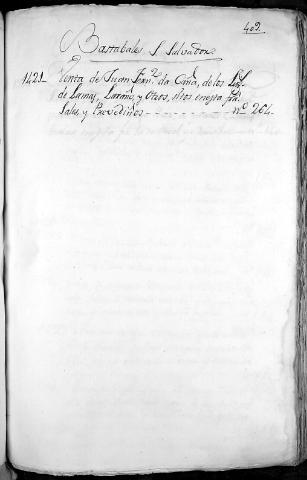 402.
Bastabales S. Salvador
1421 Venta de Juan Fern.z da Caña, de los Lug.s
de Lamas, Laraño, y Otero, sitos en esta
Sales, y Provediños - - - - - - - - - - - n.º 264.